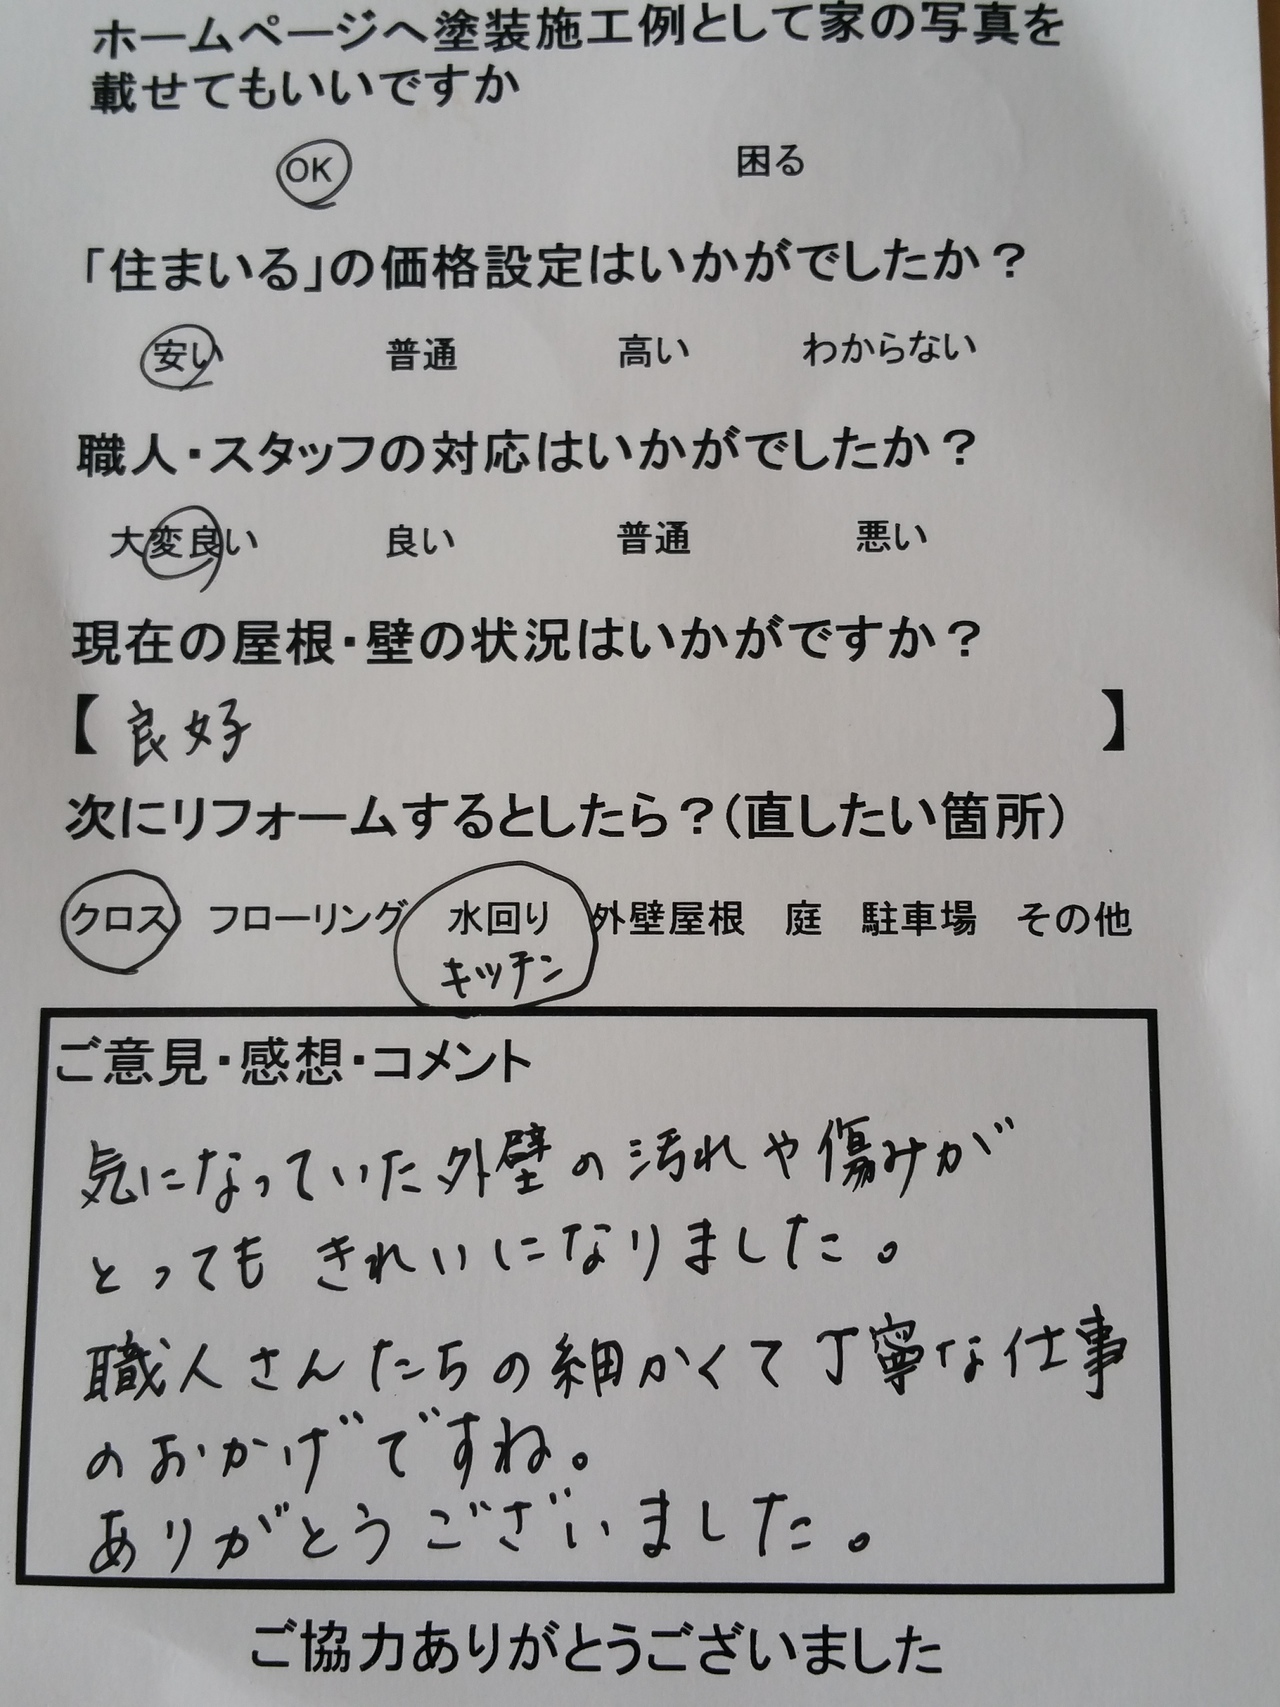 ホームページへ塗装施工例として家の写真を
載せてもいいですか
OK 困る
「住まいる」の価格設定はいかがでしたか？
安い 普通 高い わからない
職人・スタッフの対応はいかがでしたか？
大変良い 良い 普通 悪い
現在の屋根・壁の状況はいかがですか？
【 良好 】
次にリフォームするとしたら？(直したい箇所)
クロス フローリング 水回り 外壁屋根 庭 駐車場 その他
キッチン
ご意見・感想・コメント
気になっていた外壁の汚れや傷みが
とっても きれいになりました。
職人さんたちの細かくて丁寧な仕事
のおかげですね。
ありがとうございました。
ご協力ありがとうございました